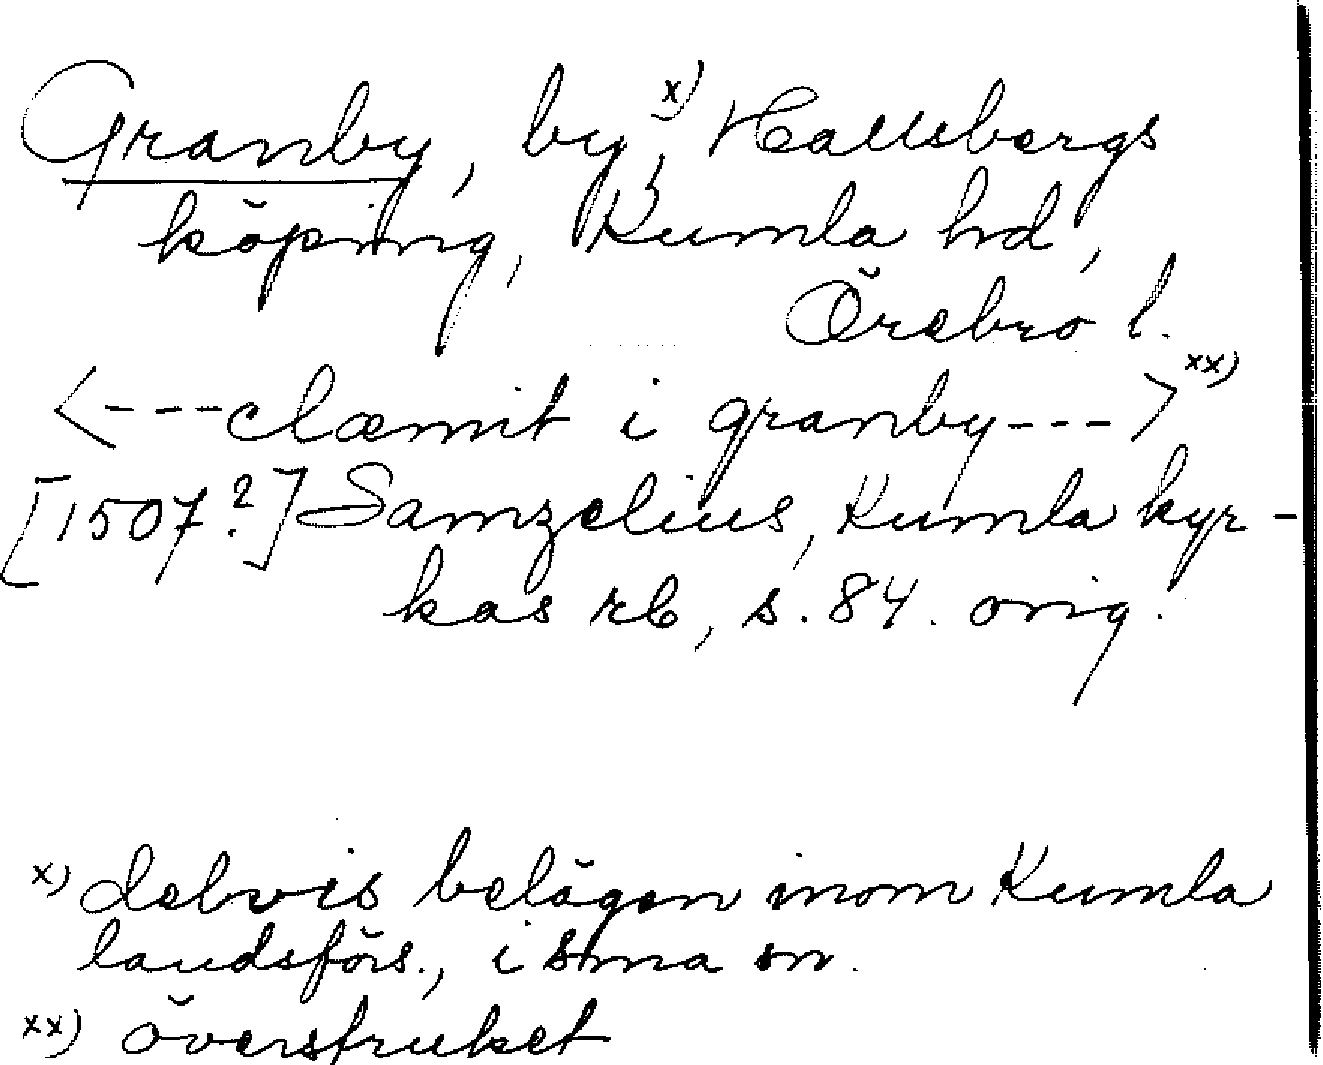 Granby, by,x) Hallsbergs
köping, Kumla hd,
Örebro l.
<---clæmit i granby---> xx)
[1507?] Samzelius, Kumla kyr-
kas rb, s. 84. orig.
x) delvis belägen inom Kumla
landsförs., i sma sn.
xx) överstruket